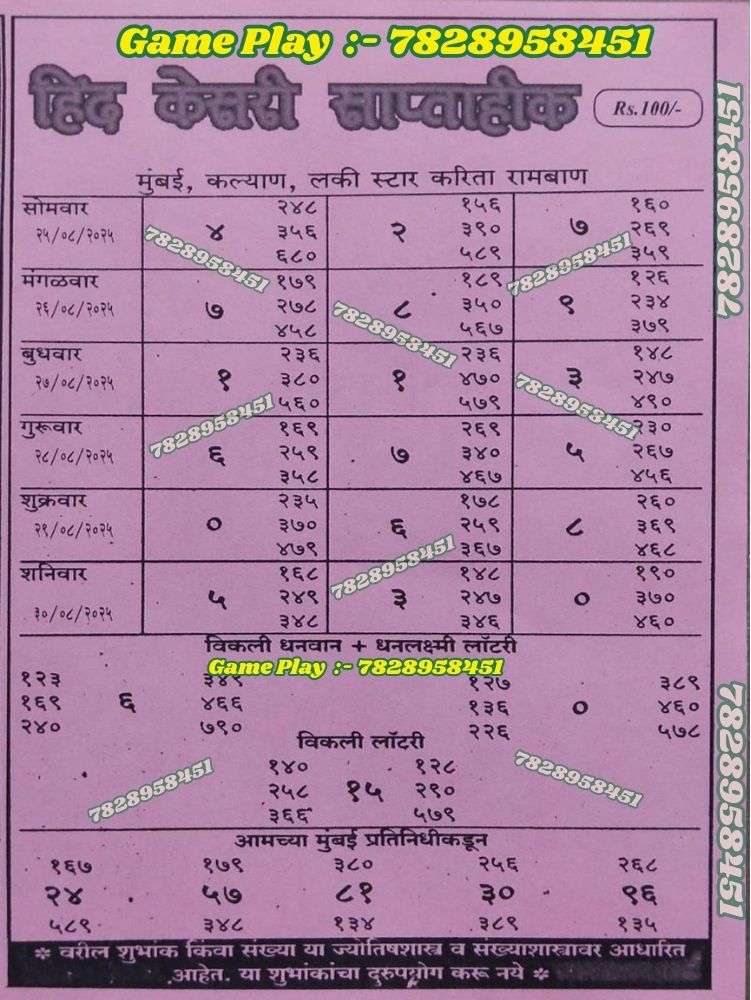 Game Play :- 7828958451
हिंद केसरी साप्ताहीक Rs.100/-
मुंबई, कल्याण, लकी स्टार करिता रामबाण
सोमवार २४८ १५६ १६०
२५/०८/२०२५ ४ ३५६ २ ३९० ७ २६९
६८० ५८९ ३५९
मंगळवार १७९ १८९ १२६
२६/०८/२०२५ ७ २७८ ८ ३५० ९ २३४
४५८ ५६७ ३७९
बुधवार २३६ २३६ १४८
२७/०८/२०२५ १ ३८० १ ४७० ३ २४७
५६० ५७९ ४९०
गुरूवार १६९ २६९ २३०
२८/०८/२०२५ ६ २५९ ७ ३४० ५ २६७
३५८ ४६७ ४५६
शुक्रवार २३५ १७८ २६०
२९/०८/२०२५ ० ३७० ६ २५९ ८ ३६९
४७९ ३६७ ४६८
शनिवार १६८ १४८ १९०
३०/०८/२०२५ ५ २४९ ३ २४७ ० ३७०
३४८ ३४६ ४६०
विकली धनवान + धनलक्ष्मी लॉटरी
Game Play :- 7828958451
१२३ ३४९ १२७ ३८९
१६९ ६ ४६६ १३६ ० ४६०
२४० ७९० २२६ ५७८
विकली लॉटरी
१४० १२८
२५८ १५ २९०
३६६ ५७९
आमच्या मुंबई प्रतिनिधीकडून
१६७ १७९ ३८० २५६ २६८
२४ ५७ ८१ ३० ९६
५८९ ३४८ १३४ ३८९ १३५
* वरील शुभांक किंवा संख्या या ज्योतिषशास्त्र व संख्याशास्त्रावर आधारित
आहेत. या शुभांकांचा दुरुपयोग करू नये *
7828958451
7828958451
7828958451
7828958451
7828958451
7828958451
7828958451
7828958451
7828958451
7828958451